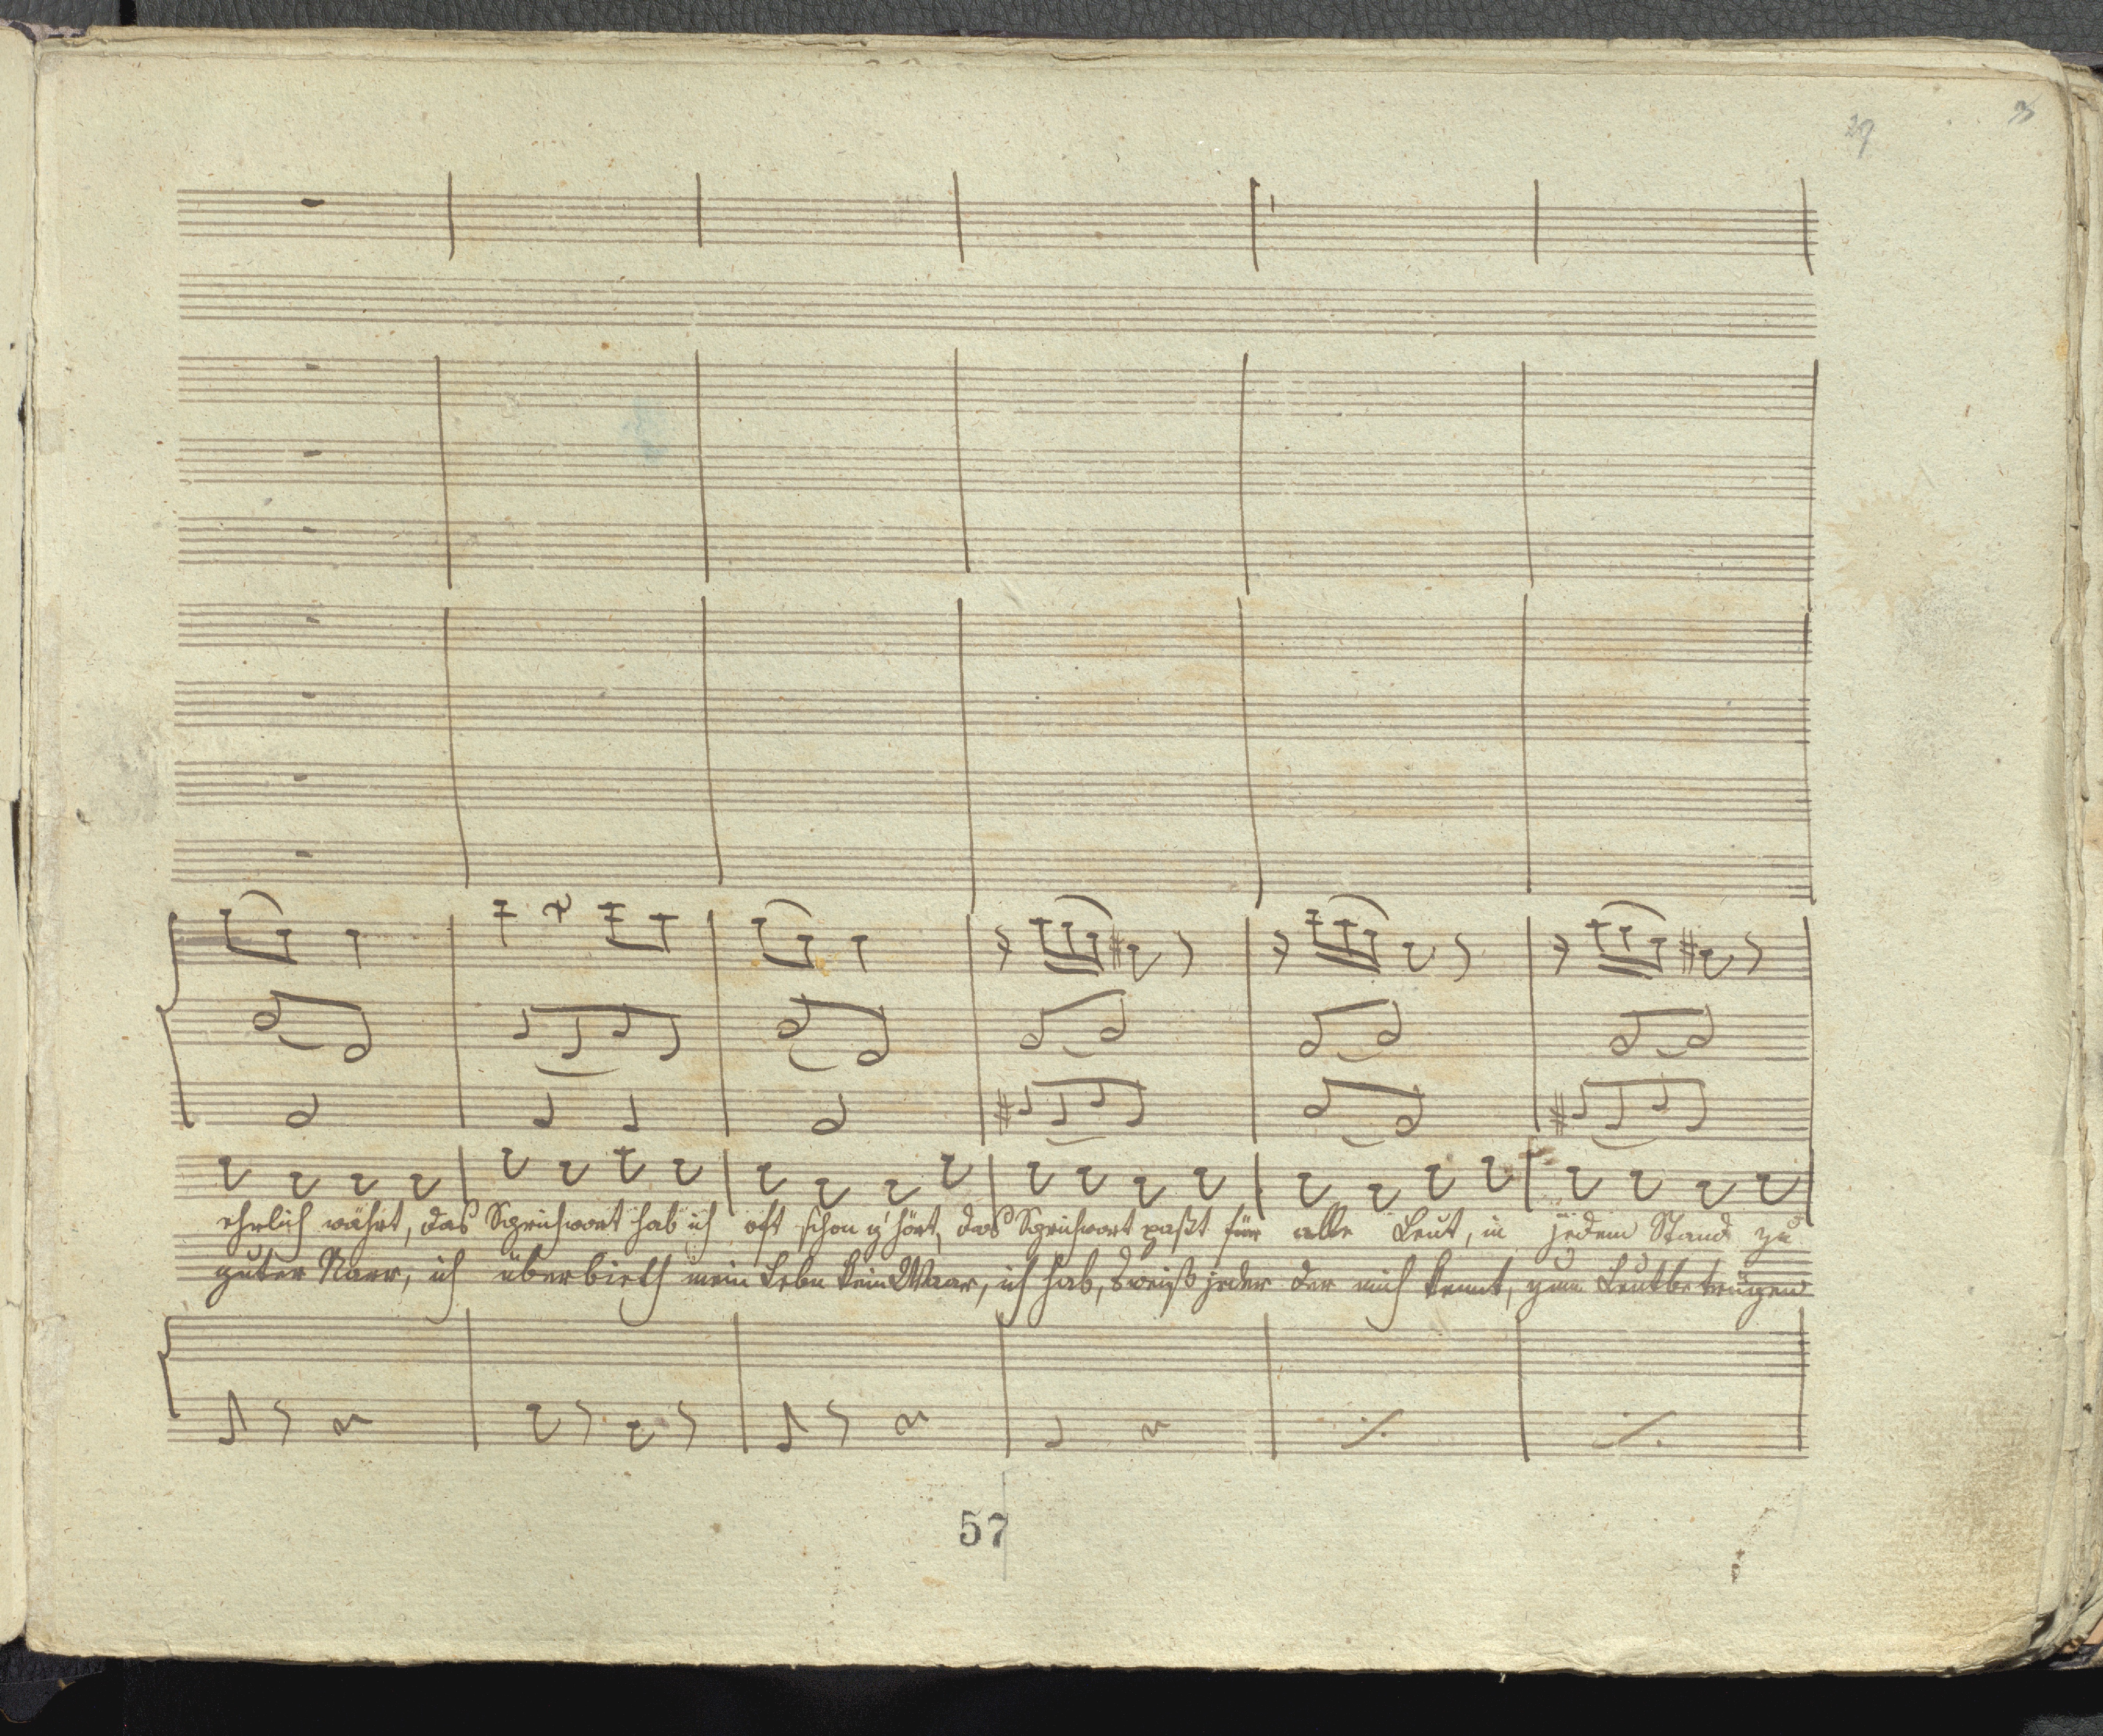 29 3
ehrlich währt, das Sprichwort hab ich oft schon g'hört, das Sprichwort paßt für alle Leut, in jedem Stand zu
guter Narr, ich überbieth mein Lebn kein Waar, ich hab, s'weiß jeder der mich kennt, zum Leutbetrügen
57